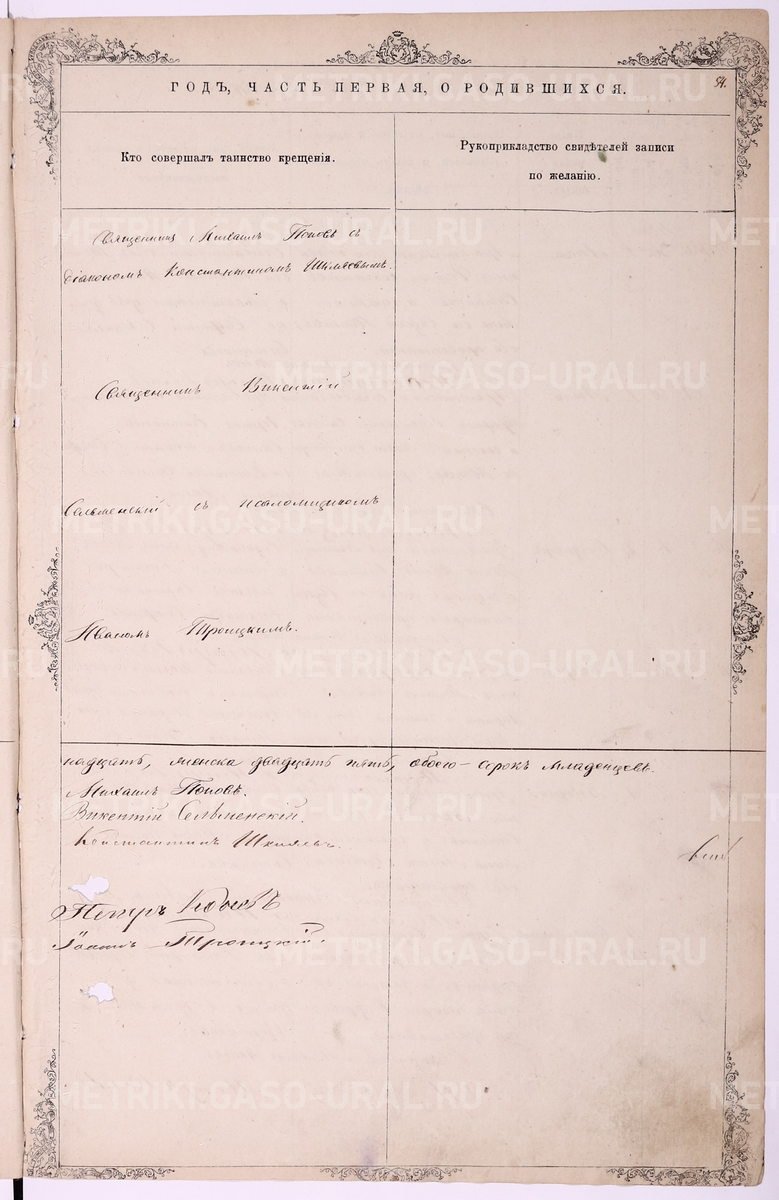 ГОДЪ, ЧАСТЬ ПЕРВАЯ, О РОДИВШИХСЯ.
54.
Кто совершалъ таинство крещенія.
Рукоприкладство свидѣтелей записи
по желанію.
Священникъ Михаилъ Поповъ съ
діакономъ Константиномъ
Священникъ Викентій
Сельменскій съ псаломщикомъ
Иваномъ Троицкимъ.
надцать, женска двадцать пять, обоего – сорокъ младенцевъ.
Михаилъ Поповъ.
Викентій Сельменскій.
Константинъ
Петръ
Іоаннъ Троицкій.
METRIKI.GASO-URAL.RU